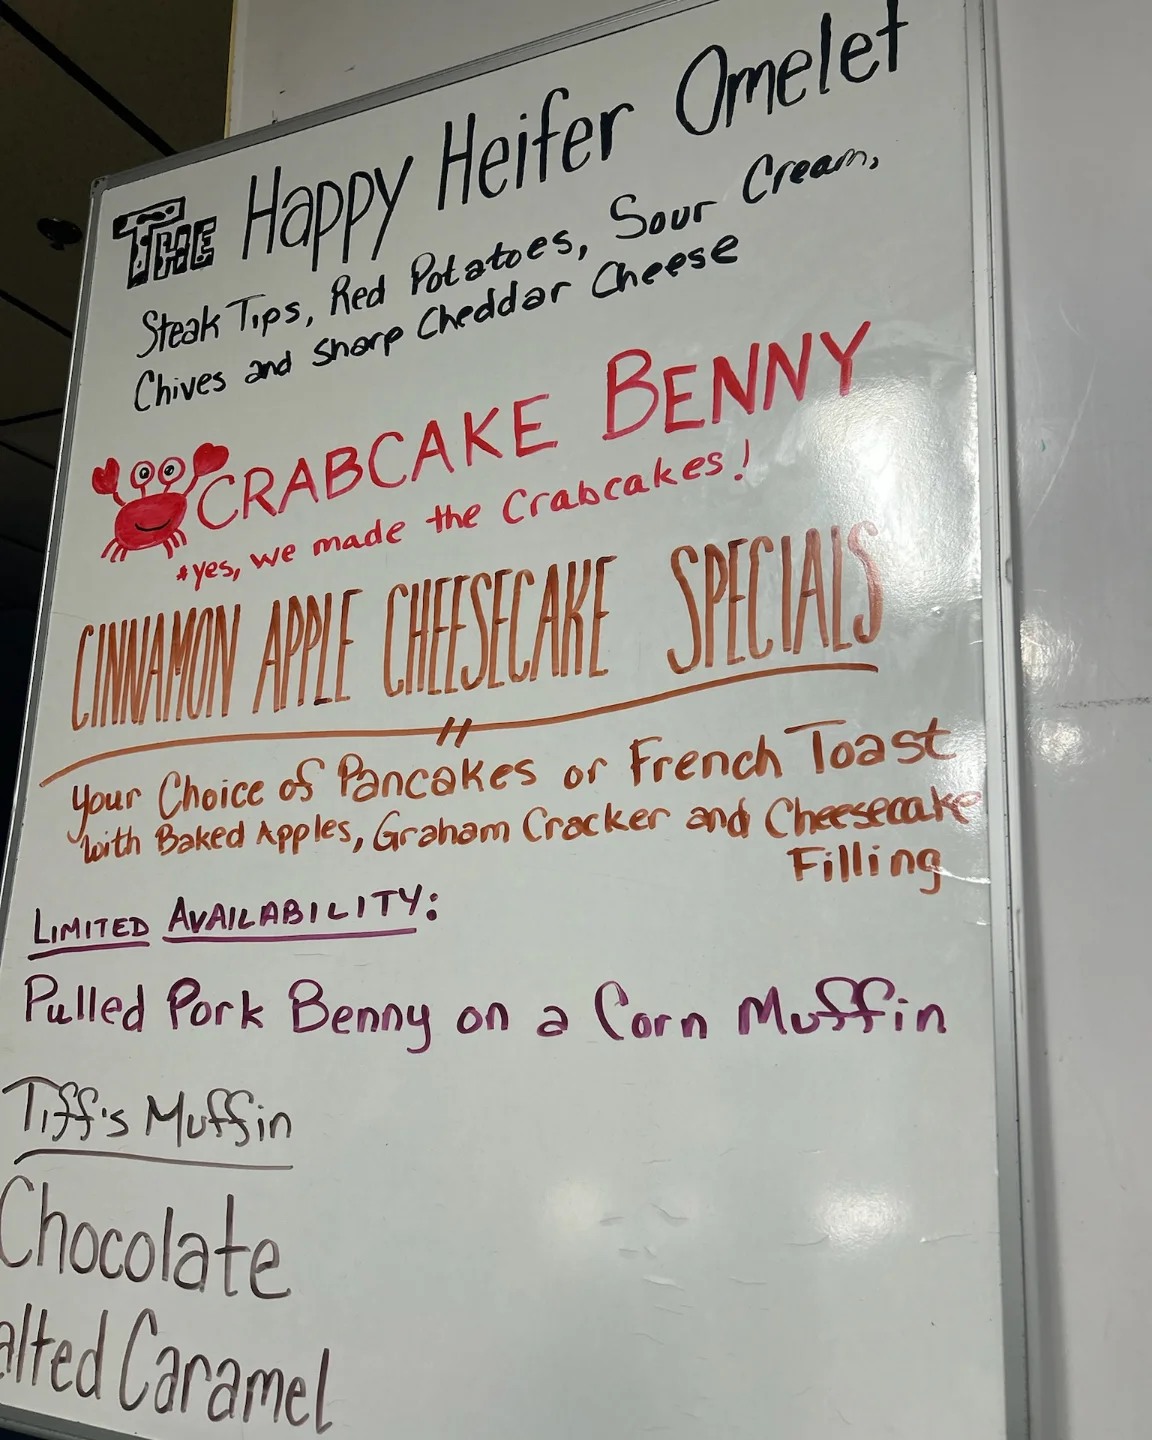 THE Happy Heifer Omelet
Steak Tips, Red Potatoes, Sour Cream,
Chives and Sharp Cheddar Cheese
CRABCAKE BENNY
*yes, we made the Crabcakes!
CINNAMON APPLE CHEESECAKE SPECIALS
your Choice of Pancakes or French Toast
with Baked Apples, Graham Cracker and Cheesecake
Filling
LIMITED AVAILABILITY:
Pulled Pork Benny on a Corn Muffin
Tiff's Muffin
Chocolate
alted Caramel